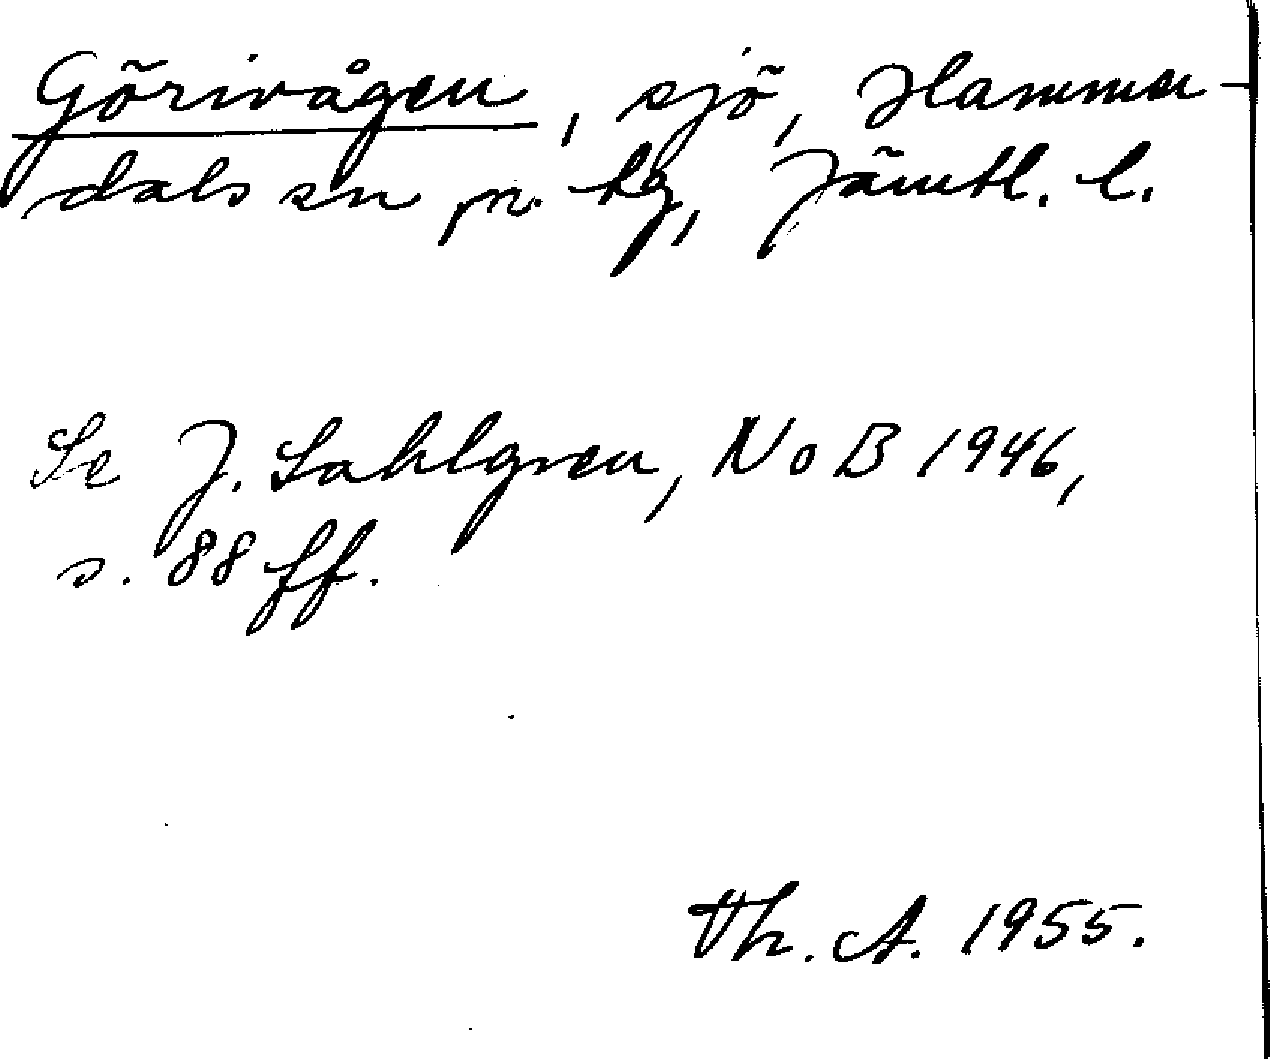 Görivågen, sjö, Hammer-
dals sn o. tg, Jämtl. l.
Se J. Sahlgren, NoB 1946,
s. 88 ff.
Th. A. 1955.